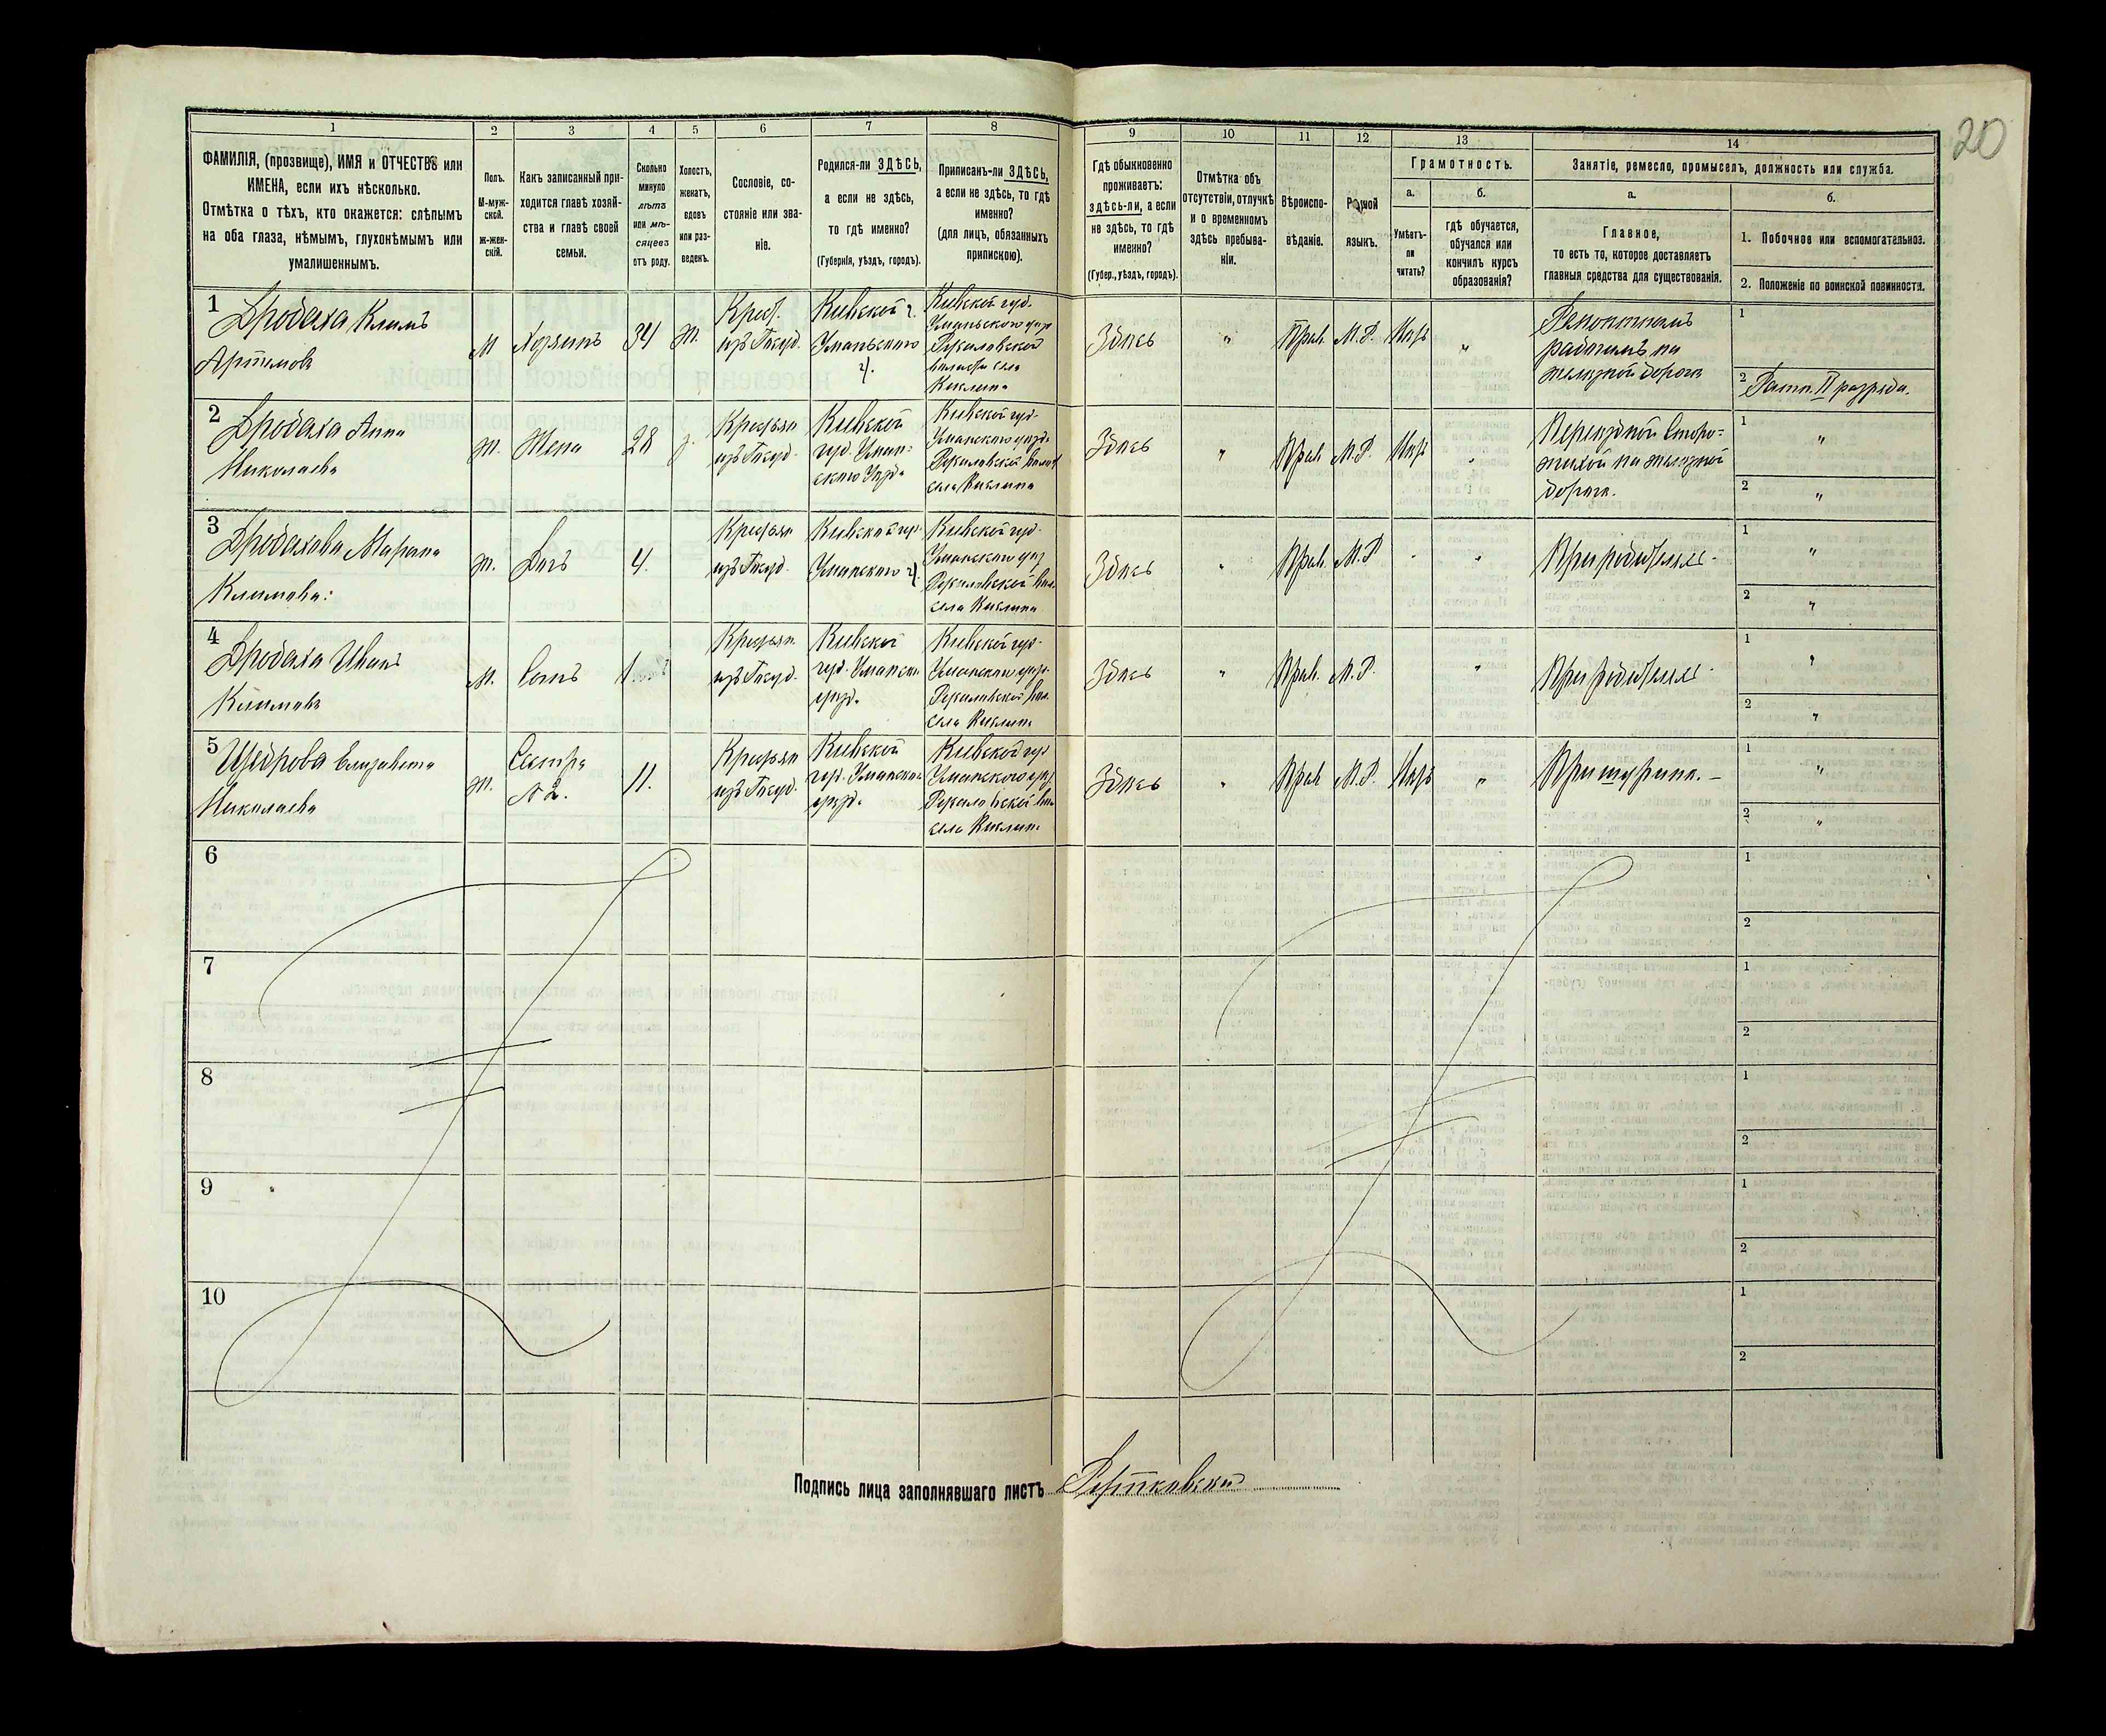 20
1 2 3 4 5 6 7 8 9 10 11 12 13 14
ФАМИЛІЯ, (прозвище), ИМЯ и ОТЧЕСТВО или
ИМЕНА, если ихъ нѣсколько.
Отмѣтка о тѣхъ, кто окажется: слѣпымъ
на оба глаза, нѣмымъ, глухонѣмымъ или
умалишеннымъ.
Полъ.
М-муж-
ской.
ж-жен-
скій.
Какъ записанный при-
ходится главѣ хозяй-
ства и главѣ своей
семьи.
Сколько
минуло
лѣтъ
или мѣ-
сяцевъ
отъ роду.
Холостъ,
женатъ,
вдовъ
или раз-
веденъ.
Сословіе, со-
стояніе или зва-
ніе.
Родился-ли ЗДѢСЬ,
а если не здѣсь,
то гдѣ именно?
(Губернія, уѣздъ, городъ).
Приписанъ-ли ЗДѢСЬ,
а если не здѣсь, то гдѣ
именно?
(для лицъ, обязанныхъ
припискою).
Гдѣ обыкновенно
проживаетъ:
здѣсь-ли, а если
не здѣсь, то гдѣ
именно?
(Губер., уѣздъ, городъ).
Отмѣтка объ
отсутствіи, отлучкѣ
и о временномъ
здѣсь пребыва-
ніи.
Вѣроиспо-
вѣданіе.
Родной
языкъ.
Грамотность.
а.
Умѣетъ-
ли
читать?
б.
гдѣ обучается,
обучался или
кончилъ курсъ
образованія?
Занятіе, ремесло, промыселъ, должность или служба.
а.
Главное,
то есть то, которое доставляетъ
главныя средства для существованія.
б.
1. Побочное или вспомогательное.
2. Положеніе по воинской повинности.
1
Дробаха Климъ
Артемовъ
М
Хозяинъ
34
Ж.
Крест.
изъ Госуд.
Кіевской г.
Уманьскаго
у.
Кіевской губ.
Уманьскаго уѣзд
волости села
Здѣсь
"
Прав.
М.Р.
"
Ремонтнымъ
рабочимъ на
желѣзной дорогѣ
1
2 Ратн. II разряда.
2
Дробаха Анна
Николаева
Ж.
Жена
28
з.
Крестьян
изъ Госуд.
Кіевской
губ. Уман-
скаго Уѣзда
Кіевской губ.
Уманскаго уѣзда
Здѣсь
"
Прав
М.Р.
"
Переѣздной Сторо-
жихой на желѣзной
дорогѣ.
1 "
2 "
3
Дробахова Марина
Климова:
Ж.
Дочь
4.
Крестьян
изъ Госуд.
Кіевской губ.
Уманскаго у.
Кіевской губ.
Уманскаго уѣз
Здѣсь
"
Прав.
М.Р
"
При родителяхъ.
1 "
2 "
4
Дробаха Иванъ
Климовъ
М.
Сынъ
1
Крестьян
изъ Госуд.
Кіевской
губ. Уманскаго
уѣзда
Кіевской губ.
Уманскаго уѣзда
Здѣсь
"
Прав.
М.Р.
"
При родителяхъ.
1 "
2 "
5
Щедрова Елизавета
Николаева
Ж.
Сестра
№ 2.
11.
Крестьян
изъ Госуд.
Кіевской
губ. Уманскаго
уѣзда
Кіевской губ
Уманского уѣзд
Здѣсь
"
Прав
М.Р.
"
При шуринѣ. —
1 "
2 "
6
1
2
7
1
2
8
1
2
9
1
2
10
1
2
Подпись лица заполнявшаго листъ